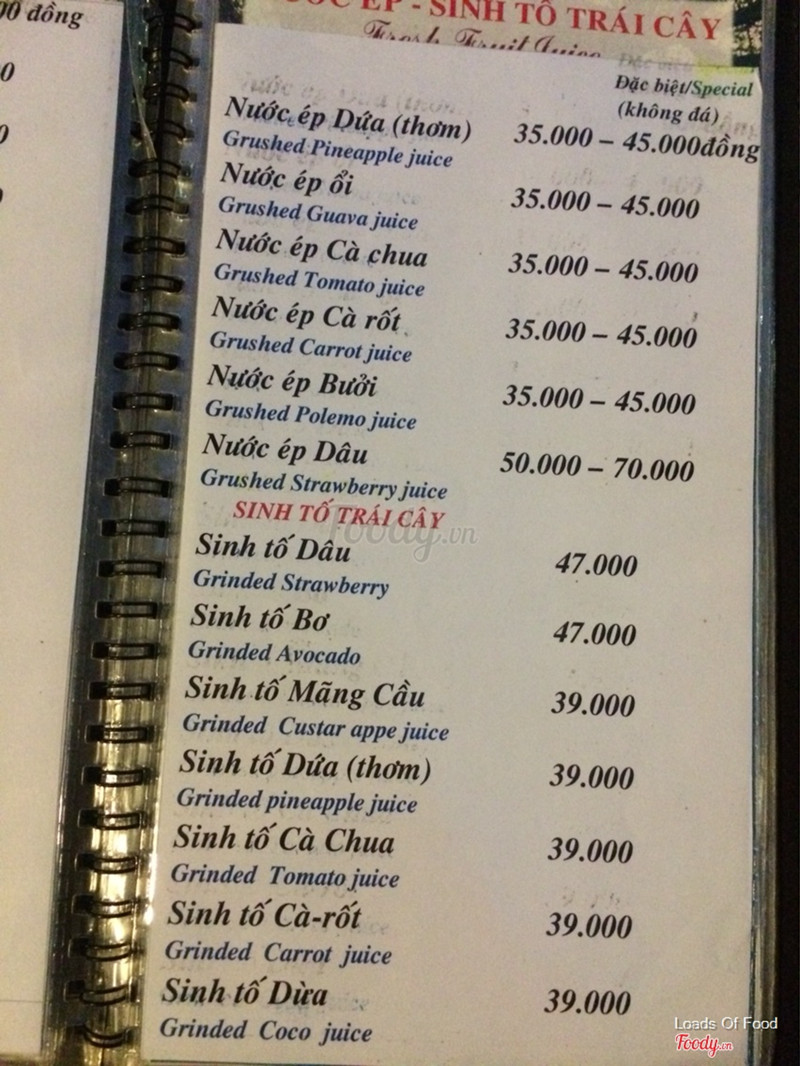 00 đồng
0
0
ƯỚC ÉP - SINH TỐ TRÁI CÂY
Fresh Fruit Juice
Đặc biệt/Special
(không đá)
Nước ép Dứa (thơm) 35.000 – 45.000đồng
Grushed Pineapple juice
Nước ép ổi 35.000 – 45.000
Grushed Guava juice
Nước ép Cà chua 35.000 – 45.000
Grushed Tomato juice
Nước ép Cà rốt 35.000 – 45.000
Grushed Carrot juice
Nước ép Bưởi 35.000 – 45.000
Grushed Polemo juice
Nước ép Dâu 50.000 – 70.000
Grushed Strawberry juice
SINH TỐ TRÁI CÂY
foody.vn
Sinh tố Dâu 47.000
Grinded Strawberry
Sinh tố Bơ 47.000
Grinded Avocado
Sinh tố Mãng Cầu 39.000
Grinded Custar appe juice
Sinh tố Dứa (thơm) 39.000
Grinded pineapple juice
Sinh tố Cà Chua 39.000
Grinded Tomato juice
Sinh tố Cà-rốt 39.000
Grinded Carrot juice
Sinh tố Dừa 39.000
Grinded Coco juice
Loads Of Food
Foody.vn